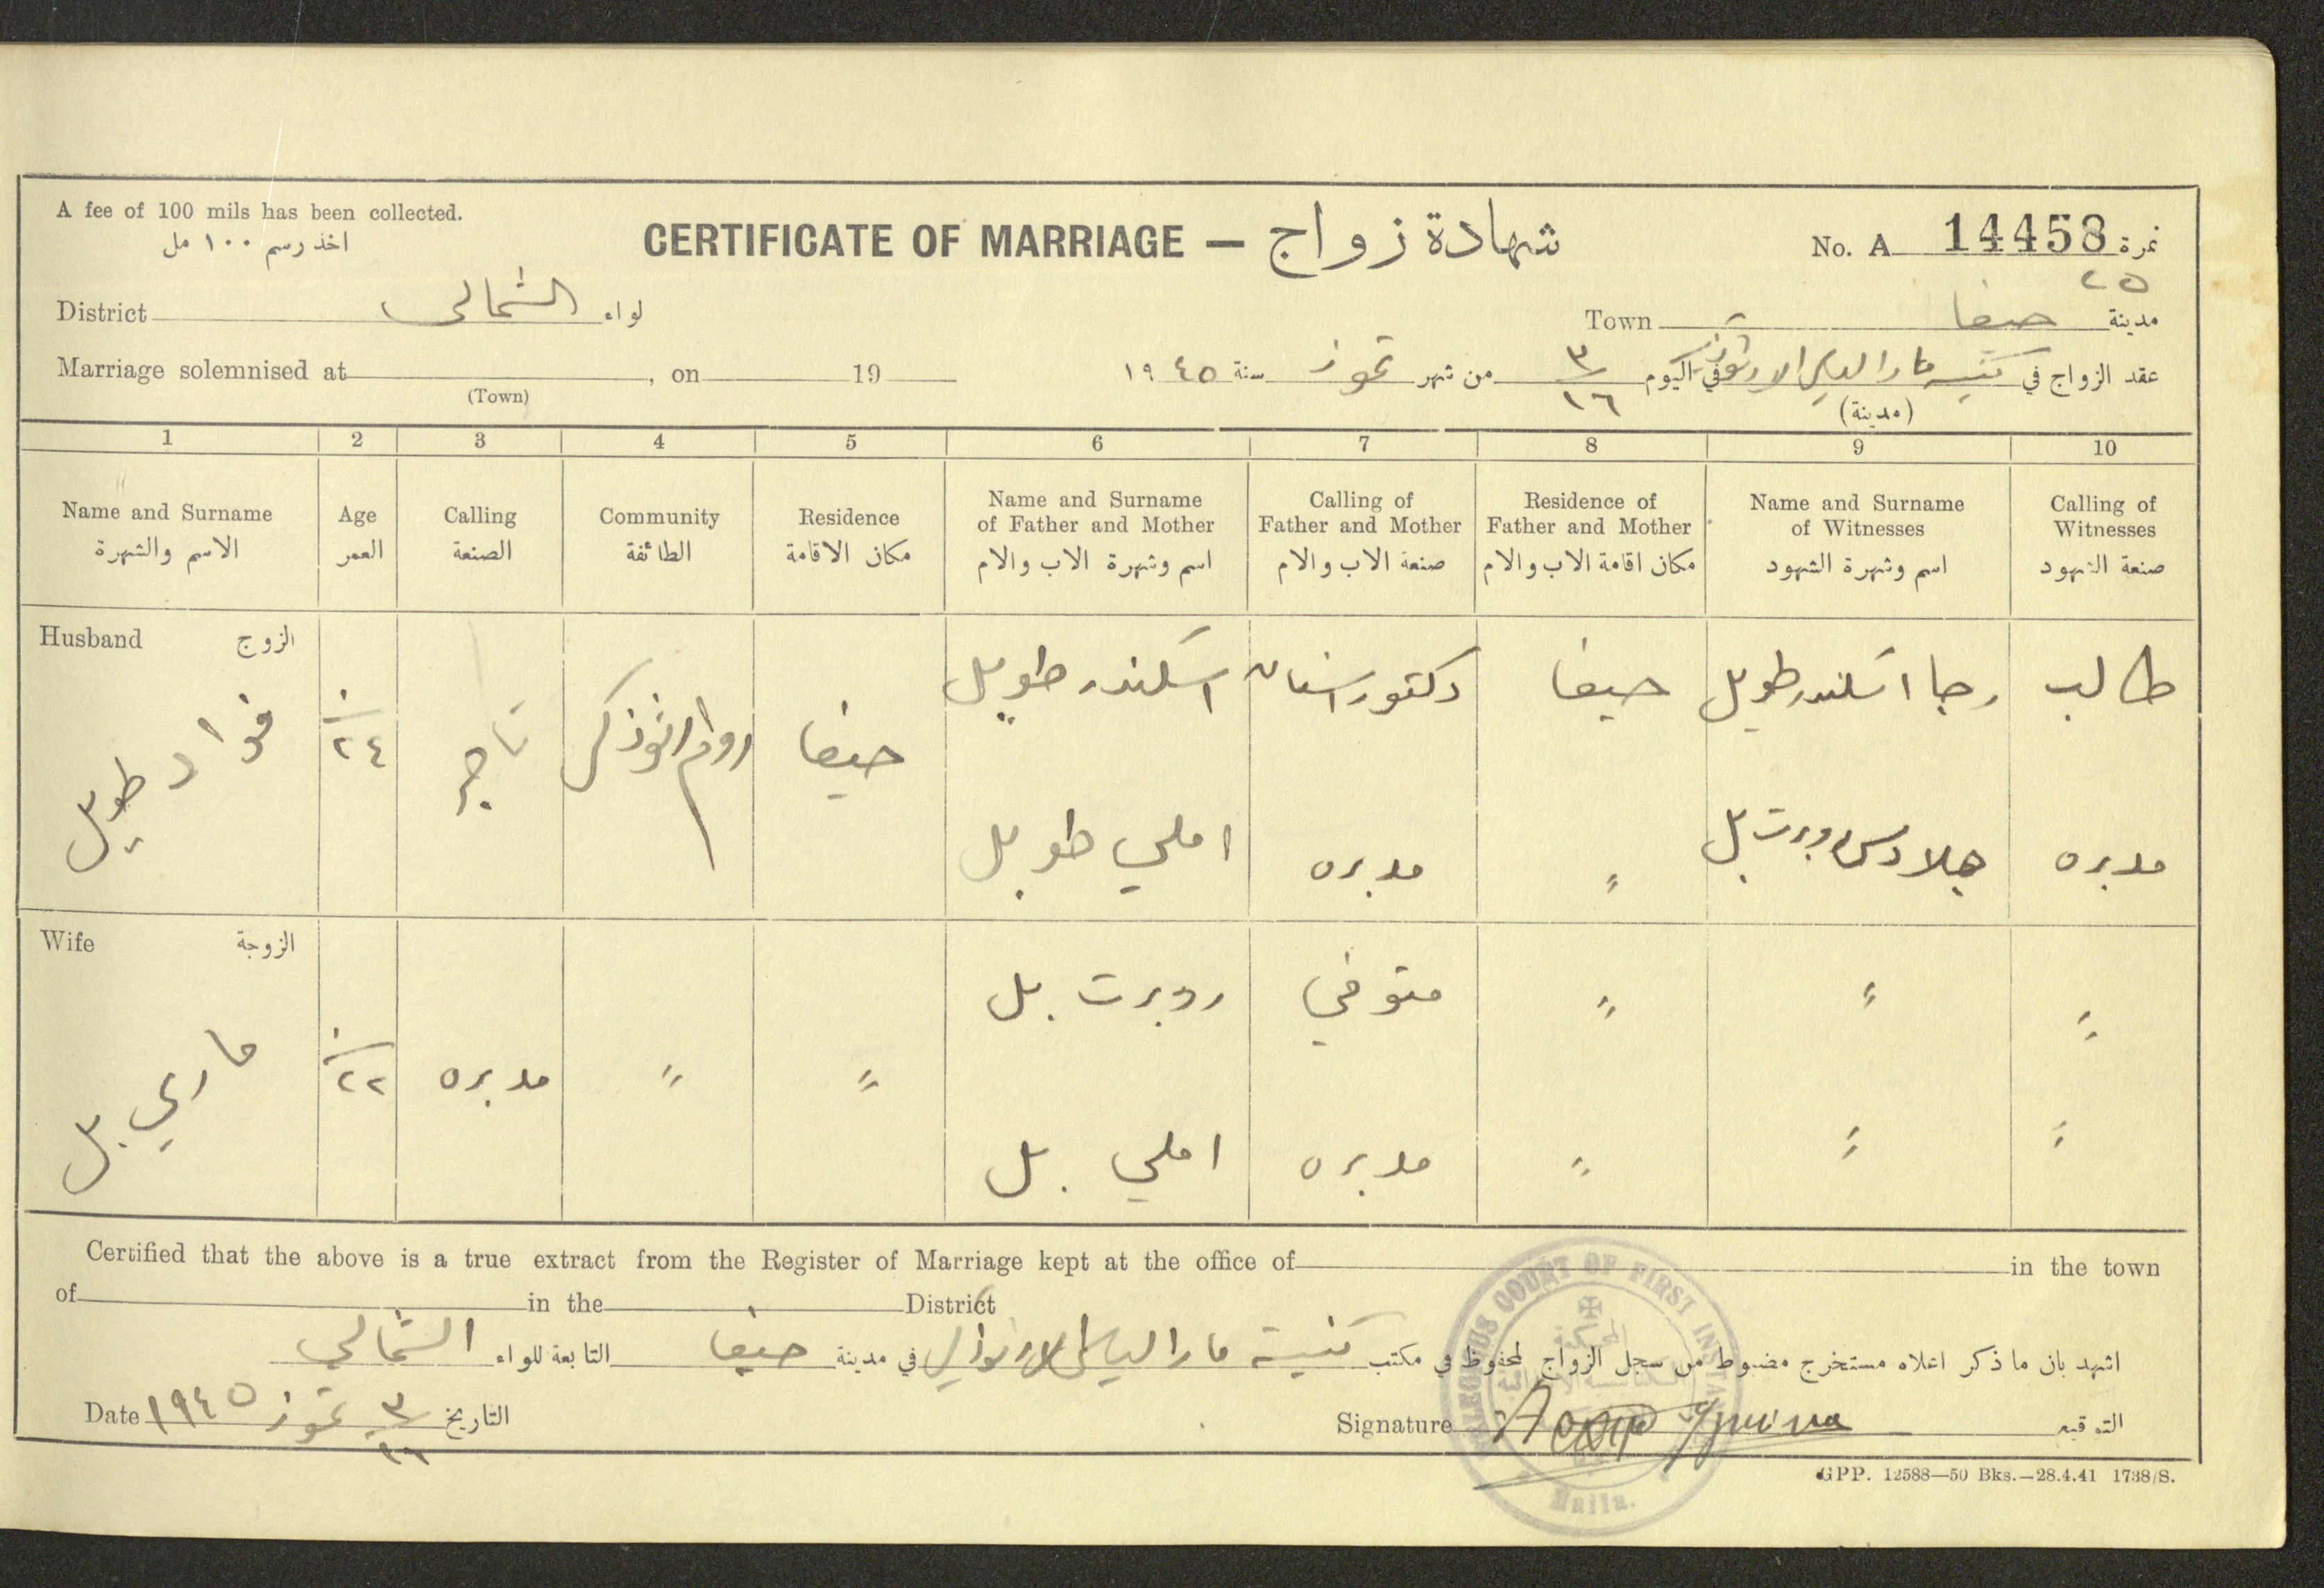 A fee of 100 mils has been collected.
اخذ رسم ١٠٠ مل
CERTIFICATE OF MARRIAGE — شهادة زواج
No. A 14458 نمرة
٢٥
District الشمالي لواء
Town حيفا مدينة
Marriage solemnised at , on 19
(Town)
عقد الزواج في كنيسة مار الياس الارثوذكس في اليوم ٣/١٦ من شهر تموز سنة ١٩٤٥
(مدينة)
1 2 3 4 5 6 7 8 9 10
Name and Surname
الاسم والشهرة
Age
العمر
Calling
الصنعة
Community
الطائفة
Residence
مكان الاقامة
Name and Surname
of Father and Mother
اسم وشهرة الاب والام
Calling of
Father and Mother
صنعة الاب والام
Residence of
Father and Mother
مكان اقامة الاب والام
Name and Surname
of Witnesses
اسم وشهرة الشهود
Calling of
Witnesses
صنعة الشهود
Husband الزوج
فؤاد طويل
٢٤
تاجر
روم ارثوذكس
حيفا
اسكندر طويل
دكتور اسنان
حيفا
رجا اسكندر طويل
طالب
املي طويل
مدبره
"
جلادس روبرت بل
مدبره
Wife الزوجة
ماري بل
٢٢
مدبره
"
"
روبرت بل
متوفي
"
"
"
املي بل
مدبره
"
"
"
Certified that the above is a true extract from the Register of Marriage kept at the office of in the town
of in the District
اشهد بان ما ذكر اعلاه مستخرج مضبوط من سجل الزواج المحفوظ في مكتب كنيسة مار الياس الارثوذكس في مدينة حيفا التابعة للواء الشمالي
Date ٣/١٦ تموز ١٩٤٥ التاريخ
Signature التوقيع
COURT OF FIRST INSTA
Haifa.
GPP. 12588—50 Bks.—28.4.41 1738/S.